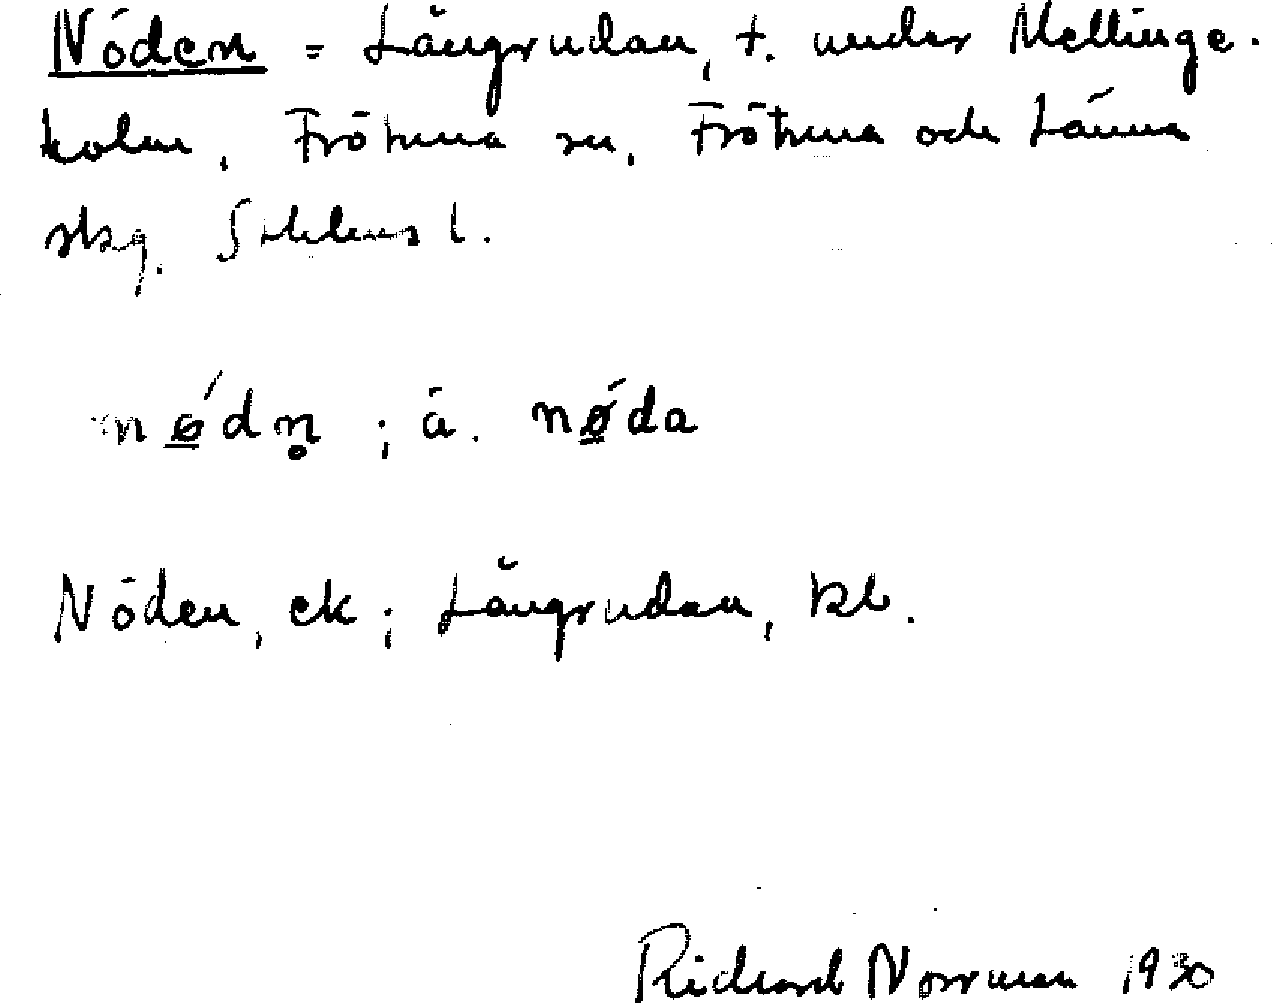 Nöden = Långrudan, t. under Mellinge-
holm, Frötuna sn, Frötuna och Länna
skg. Sthlms l.
nǿdn̥ ; ä. nǿda
Nöden, ek ; Långrudan, kb.
Rickard Norrman 1930